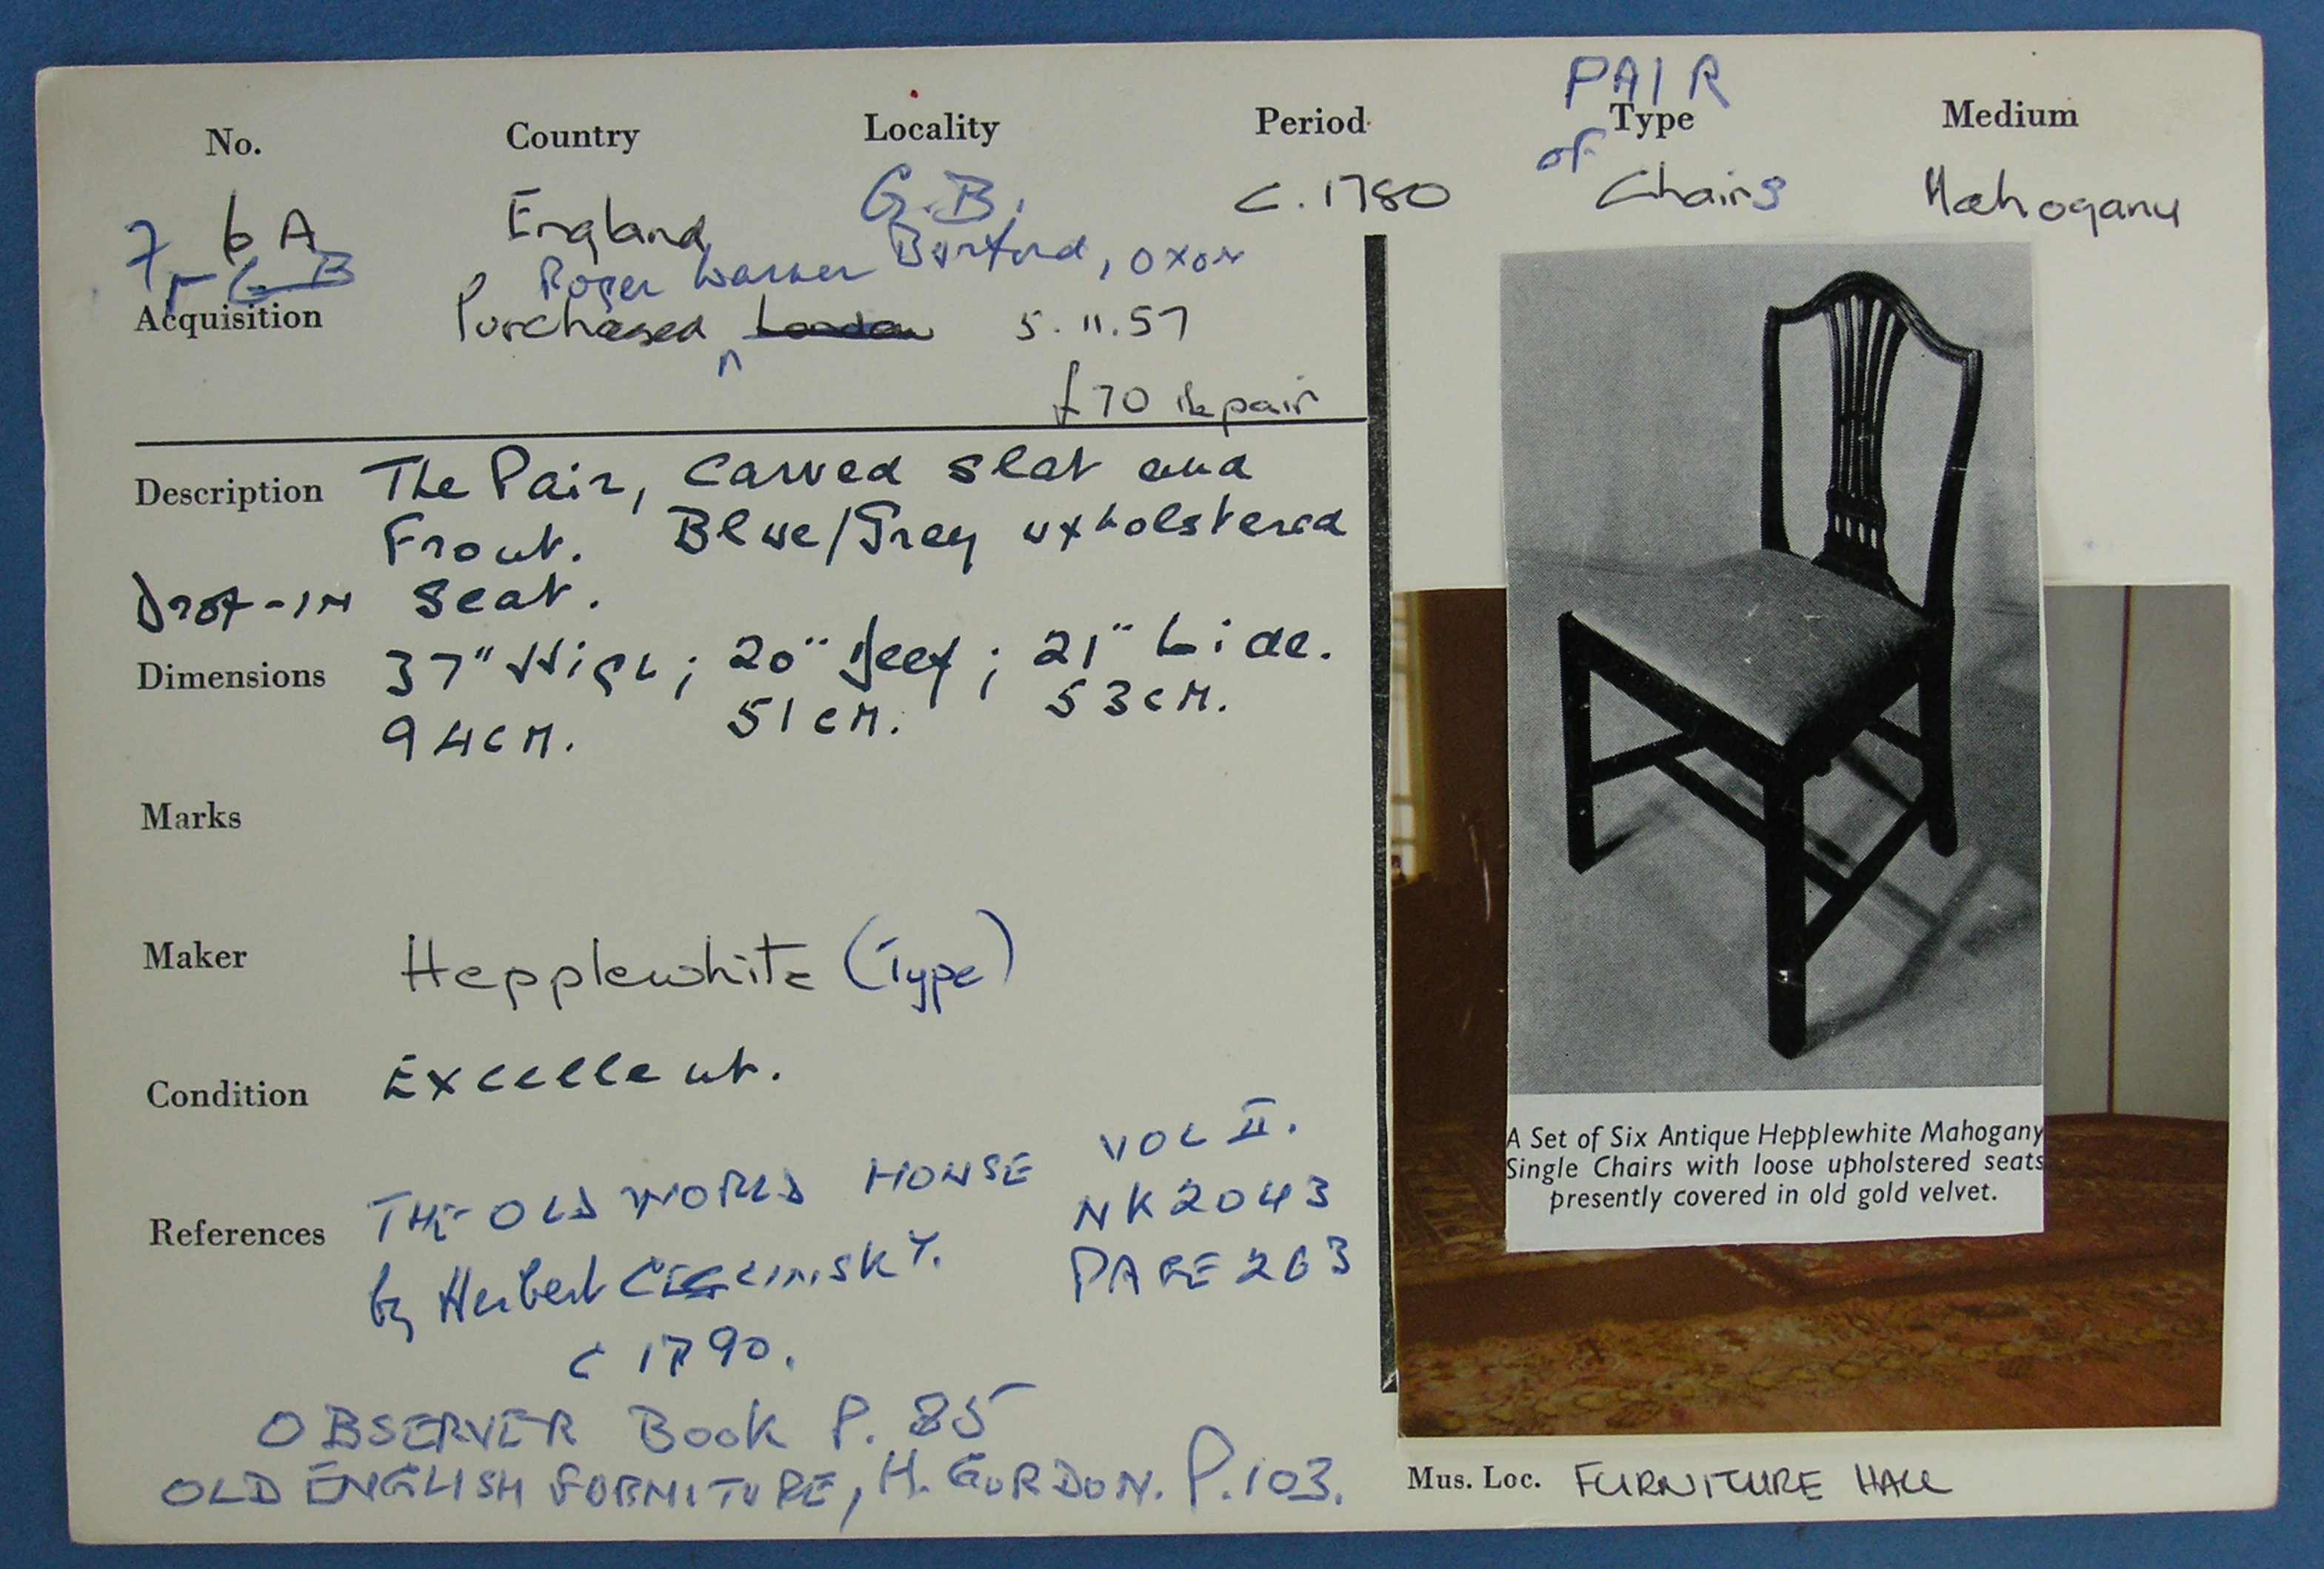 PAIR
No. Country Locality Period Type Medium
of
6A England G.B. c. 1780 Chairs Mahogany
Roger Warner Burford, OXON
Acquisition Purchased ^ London 5.11.57
£70 the pair
Description The Pair, carved slat and
Front. Blue/Grey upholstered
Drop-in seat.
Dimensions 37" High; 20" Deep; 21" Wide.
94cm. 51cm. 53cm.
Marks
Maker Hepplewhite (Type)
Condition Excellent.
References THE OLD WORLD HOUSE VOL II.
by Herbert CESCINSKY. NK2043
PAGE 263
c 1790.
OBSERVER Book P. 85
OLD ENGLISH FURNITURE, H. GORDON. P. 103.
A Set of Six Antique Hepplewhite Mahogany
Single Chairs with loose upholstered seats
presently covered in old gold velvet.
Mus. Loc. FURNITURE HALL